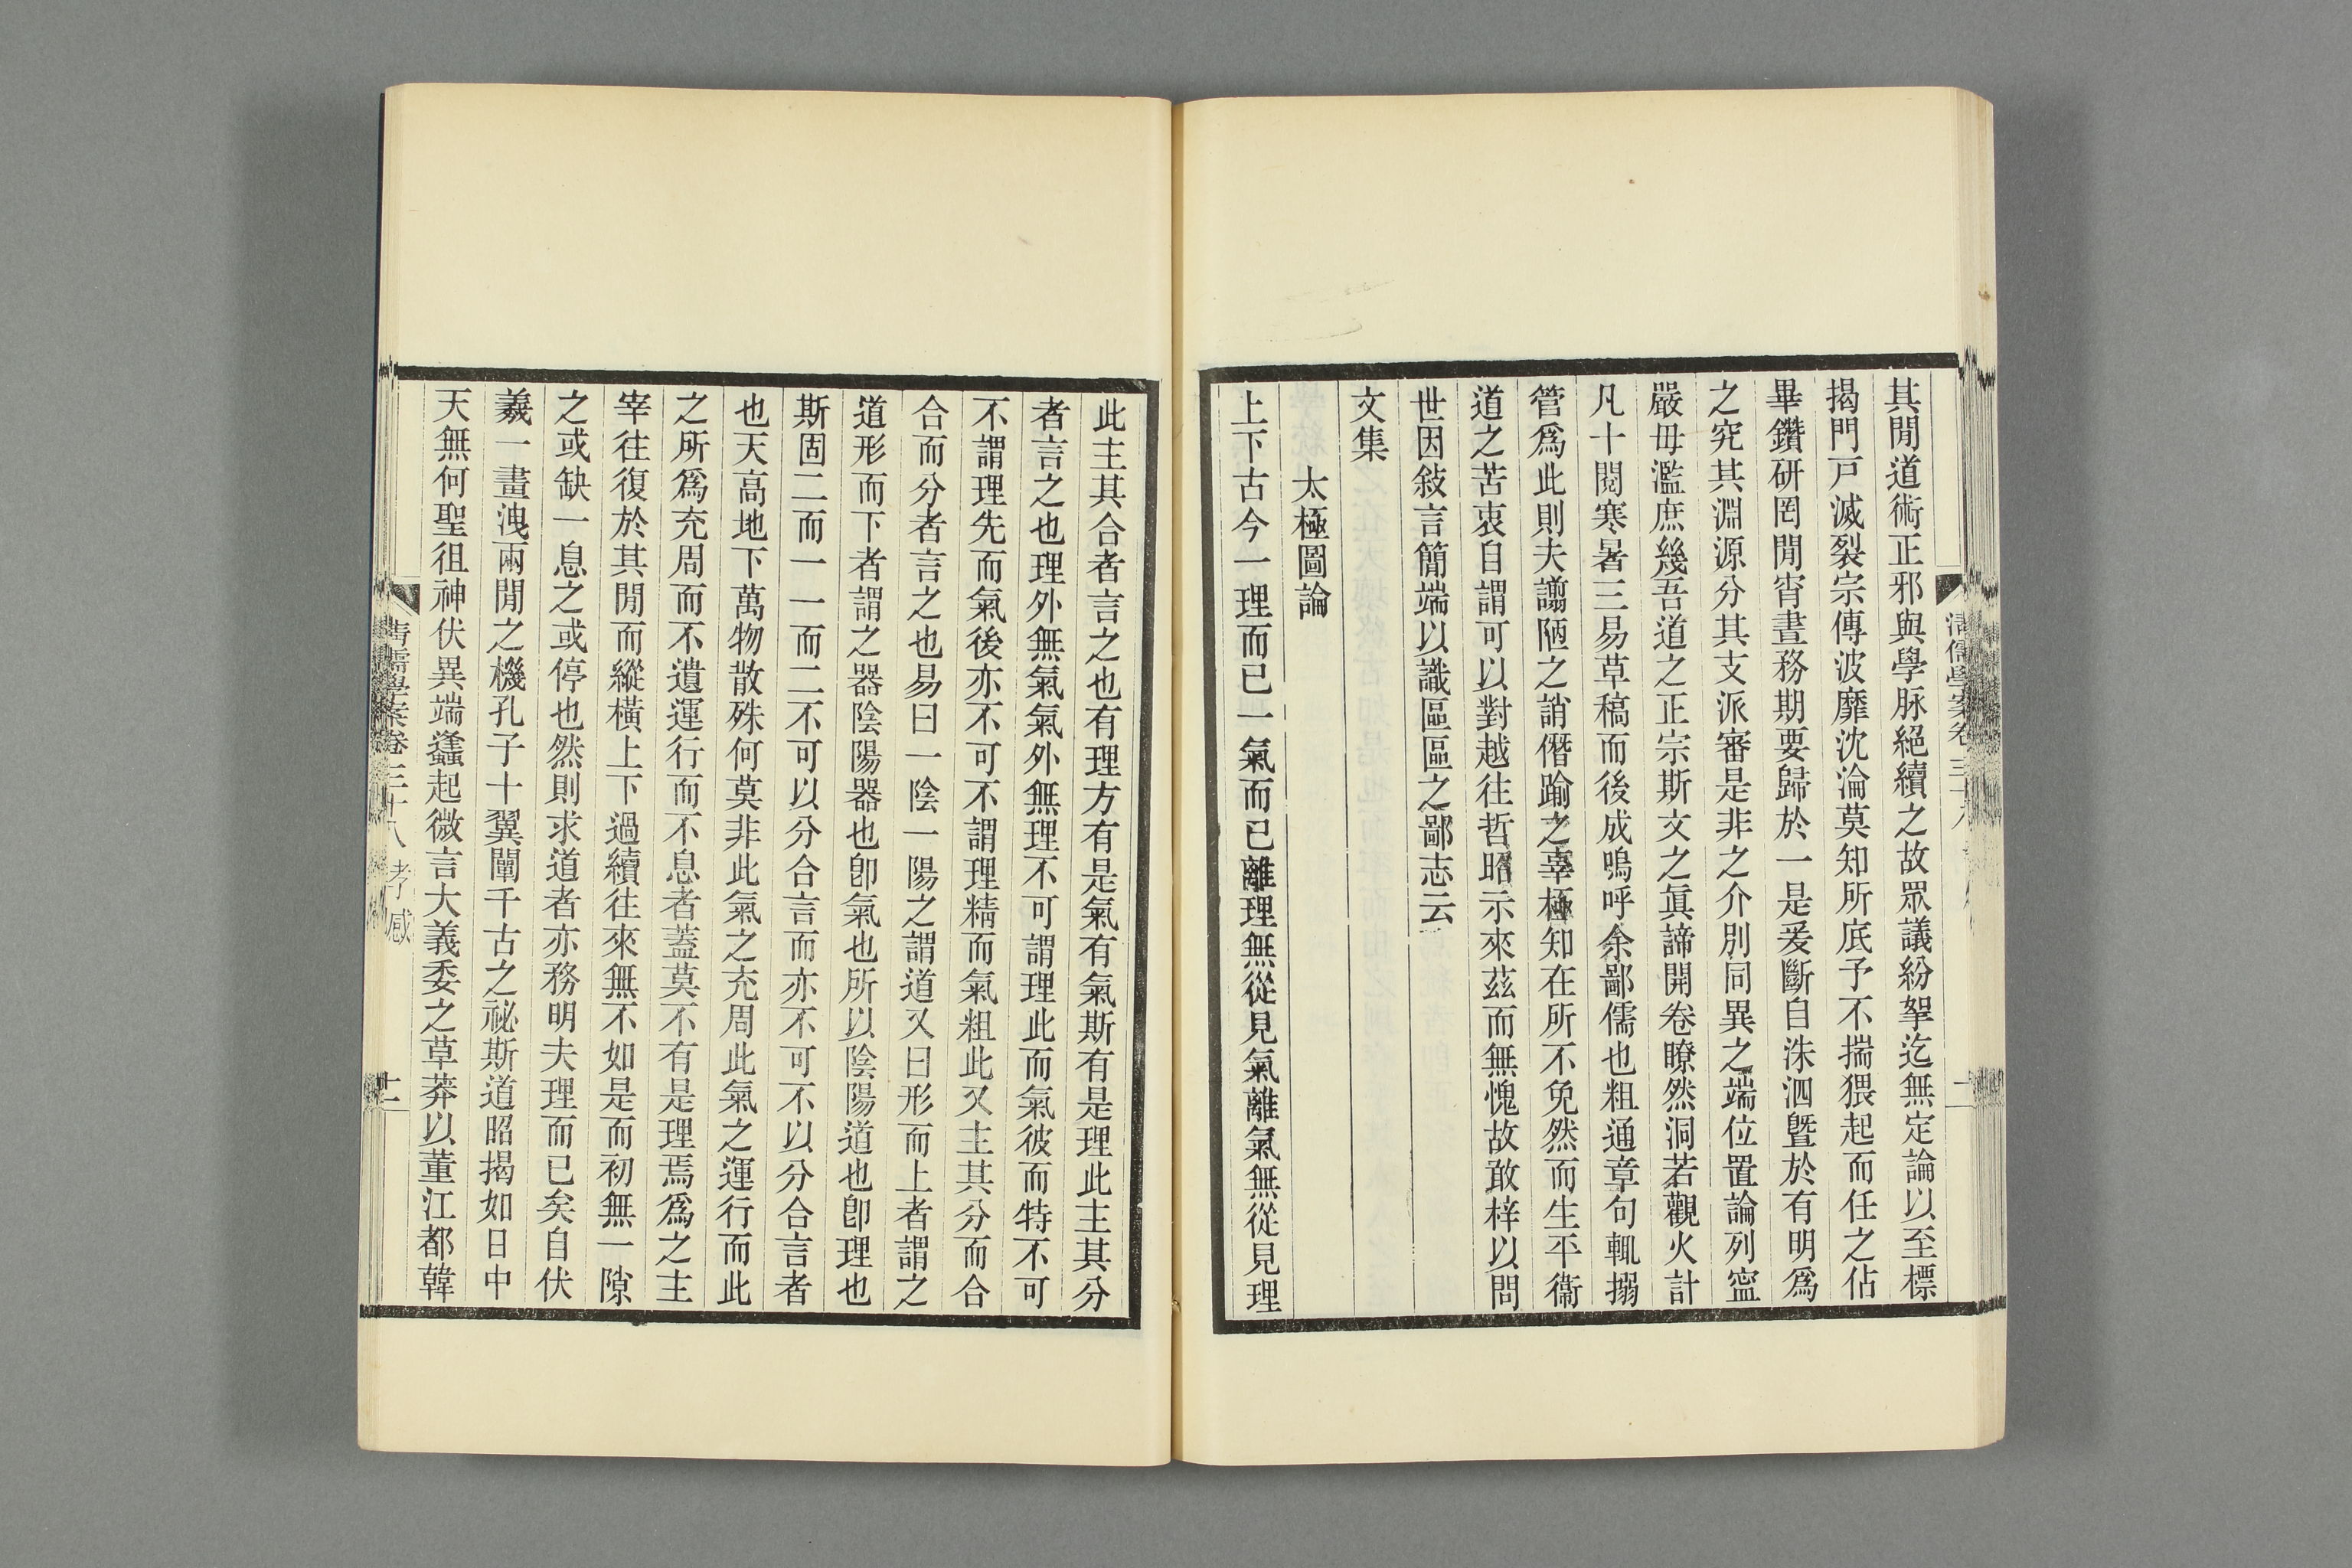 其閒道術正邪與學脉絕續之故眾議紛挐迄無定論以至標
揭門戸滅裂宗傳波靡沈淪莫知所底予不揣猥起而任之佔
畢鑽研罔閒宵晝務期要歸於一是爰斷自洙泗曁於有明爲
之究其淵源分其支派審是非之介別同異之端位置論列寍
嚴毋濫庶幾吾道之正宗斯文之眞諦開卷瞭然洞若觀火計
凡十閱寒暑三易草稿而後成嗚呼余鄙儒也粗通章句輒搦
管爲此則夫謭陋之誚僭踰之辜極知在所不免然而生平衞
道之苦衷自謂可以對越往哲昭示來茲而無愧故敢梓以問
世因敍言簡端以識區區之鄙志云
文集
太極圖論
上下古今一理而已一氣而已離理無從見氣離氣無從見理
此主其合者言之也有理方有是氣有氣斯有是理此主其分
者言之也理外無氣氣外無理不可謂理此而氣彼而特不可
不謂理先而氣後亦不可不謂理精而氣粗此又主其分而合
合而分者言之也易曰一陰一陽之謂道又曰形而上者謂之
道形而下者謂之器陰陽器也卽氣也所以陰陽道也卽理也
斯固二而一一而二不可以分合言而亦不可不以分合言者
也天高地下萬物散殊何莫非此氣之充周此氣之運行而此
之所爲充周而不遺運行而不息者蓋莫不有是理焉爲之主
宰往復於其閒而縱橫上下過續往來無不如是而初無一隙
之或缺一息之或停也然則求道者亦務明夫理而已矣自伏
羲一畫洩兩閒之機孔子十翼闡千古之祕斯道昭揭如日中
天無何聖徂神伏異端蠭起微言大義委之草莽以董江都韓
清儒學案卷三十八 孝感